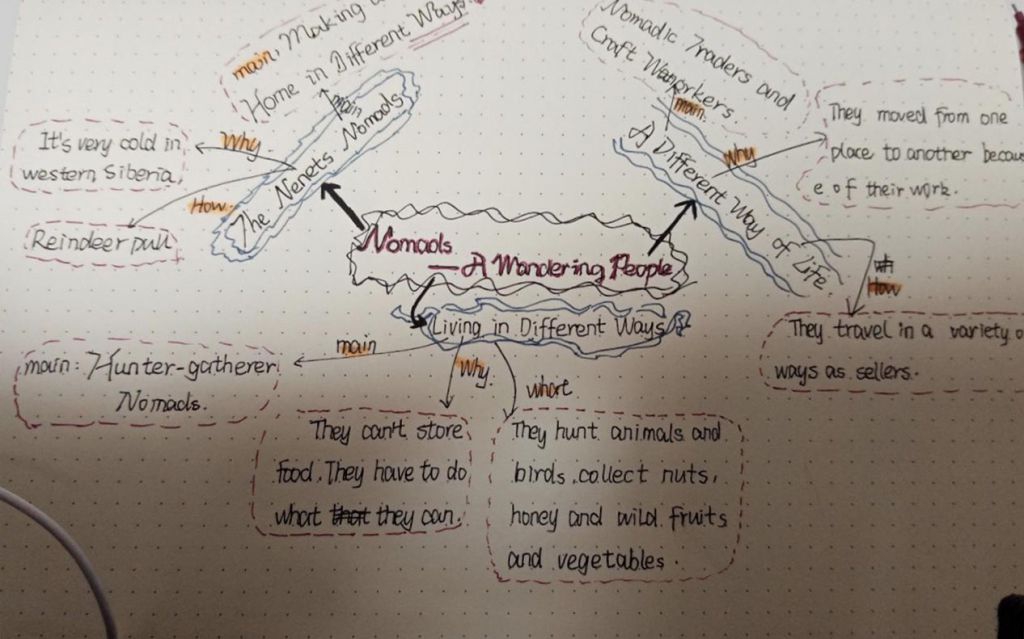 main, Making a
Home in Different Ways.
main
The Nenets Nomads
Why
It's very cold in
western Siberia,
How.
Reindeer pull
Nomadic Traders and
Craft Workers
main.
A Different Way of Life.
Why
They moved from one
place to another becaus
e of their work.
How
They travel in a variety o
ways as sellers.
Nomads
—A Wandering People
Living in Different Ways
main
main: Hunter-gatherer
Nomads.
Why.
They can't store
food. They have to do
what that they can.
what
They hunt animals and
birds, collect nuts,
honey and wild fruits
and vegetables.